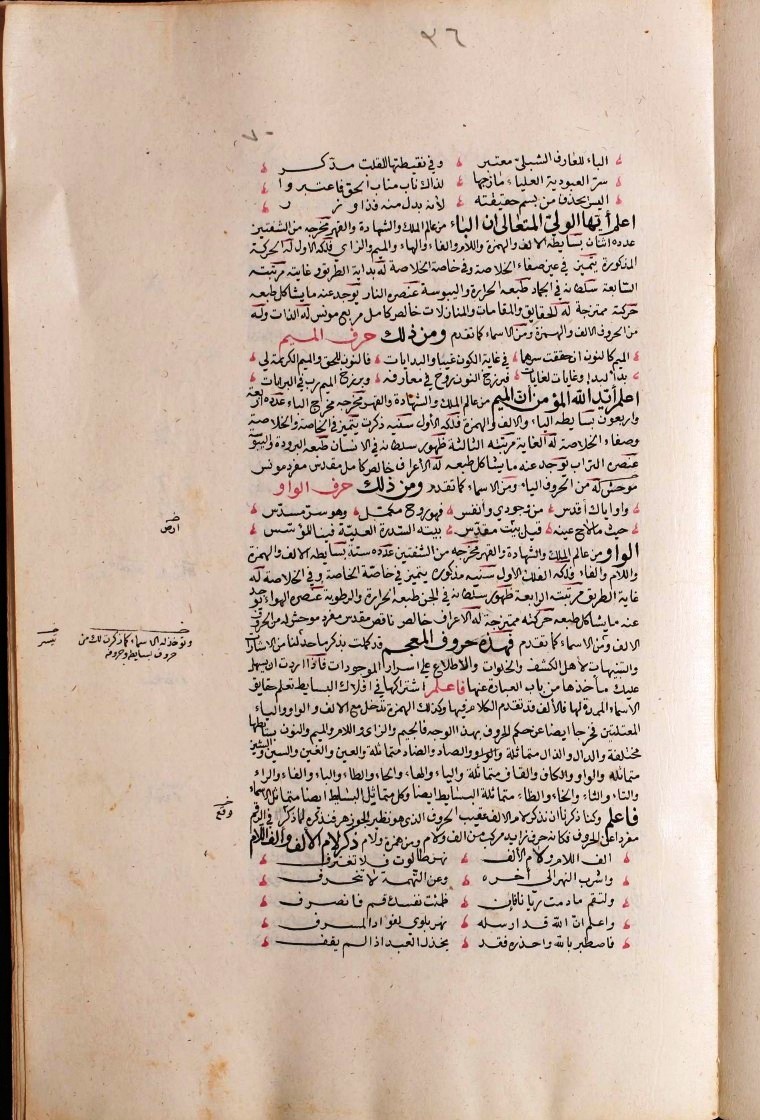 ٣٦
الباء للعارف الشبلي معتبر وفي نقيطتها للقلب مدكر
سر العبودية العلياء مازجها لذاك ناب مناب الحق فاعتبروا
اليس يحذف من بسم حقيقته لأنه بدل منه فذا وزر
اعلم أيها الولي المتعالى أن الباء من عالم الملك والشهادة والقهر مخرجه من الشفتين
عدده اثنان بسايطه الالف والهمزة واللام والفاء والهاء والميم والزاي فلكه الاول له الحركة
المذكورة يتميز في عين صفاء الخلاصة وفي خاصة الخلاصة له بداية الطريق وغايته مرتبته
السابعة سلطانه في الجماد طبعه الحرارة واليبوسة عنصره النار يوجد عنه ما يشاكل طبعه
حركته ممتزجة له الحقايق والمقامات والمنازلات خالص كامل مربع مونس له الذات وله
من الحروف الالف والهمزة ومن الاسماء كما تقدم ومن ذلك حرف الميم
الميم كالنون ان حققت سرهما في غاية الكون عينا والبدايات فالنون للحق والميم الكريمة لي
بدأ لبدإ وغايات لغايات فبرزخ النون روح في معارفه وبرزخ الميم رب في البريات
اعلم أيد الله المؤمن أن الميم من عالم الملك والشهادة والقهر مخرجه مخرج الباء عدده اربعة
واربعون بسايطه الياء والالف والهمزة فلكه الأول سنيه ذكرت يتميز في الخاصة والخلاصة
وصفاء الخلاصة له الغاية مرتبته الثالثة ظهور سلطانه في الانسان طبعه البرودة واليبو
عنصره التراب يوجد عنه ما يشاكل طبعه له الأعراف خالص كامل مقدس مفرد مونس
موحش له من الحروف الياء ومن الاسماء كما تقدم ومن ذلك حرف الواو
واو اياك أقدس من وجودي وأنفس فهو روح مكمل وهو سر مسدس
حيث ما لاح عينه قيل بيت مقدس بيته السدرة العلية فينا المؤسس
الواو من عالم الملك والشهادة والقهر مخرجه من الشفتين عدده ستة بسايطه الالف والهمزة
واللام والفاء فلكه الفلك الاول سنيه مذكورة يتميز في خاصة الخاصة وفي الخلاصة له
غاية الطريق مرتبته الرابعة ظهور سلطانه في الجن طبعه الحرارة والرطوبة عنصره الهواء يوجد
عنه ما يشاكل طبعه حركته ممتزجة له الاعراف خالص ناقص مقدس مفرد موحش له من الحروف
الالف ومن الاسماء كما تقدم فهذه حروف المعجم قد كملت بذكر ما حد لنا من الاشارات
والتنبيهات لأهل الكشف والخلوات والاطلاع على اسرار الموجودات فاذا اردت ان يسهل
عليك مأخذها من باب العبارة عنها فاعلم اشتراكها في افلاك البسايط تعلم حقايق
الاسماء الممدة لها فالألف قد تقدم الكلام فيها وكذلك الهمزة تدخل مع الالف والواو والياء
المعتلتين فخرجا ايضا عن حكم الحروف بهذا الوجه فالجيم والزاى واللام والميم والنون بسائطها
مختلفة والدال والذال متماثلة والواو والصاد والضاد متماثلة والعين والغين والسين والشين
متماثلة والواو والكاف والقاف متماثلة والياء والهاء والحاء والطاء والباء والفاء والراء
والتاء والثاء والخاء والظاء متماثلة البسايط ايضا وكل متماثل البسايط ايضا متماثل الاسماء
فاعلم وكنا ذكرنا أن نذكر لام الالف عقيب الحروف الذي هو نظير الجوزهر فنذكره لما ذكر في الرقم
مفردا عن الحروف فكانه حرف زايد مركب من الف ولام ومن همزة ولام ذكر لام الالف والف اللام
الف اللام ولام الألف نهر طالوت فلا تغترف
واشرب النهر الى آخره وعن النهمة لا تنحرف
ولتقم ما دمت ريانا فإن ظمئت نفسك قم فانصرف
واعلم ان الله قد ارسله نهر بلوى لفؤاد المسرف
فاصطبر بالله واحذره فقد يخذل العبد اذا لم يقف
وتؤخذ له الاسماء كما ذكرت لك من
حروف بسايطه وحروفه